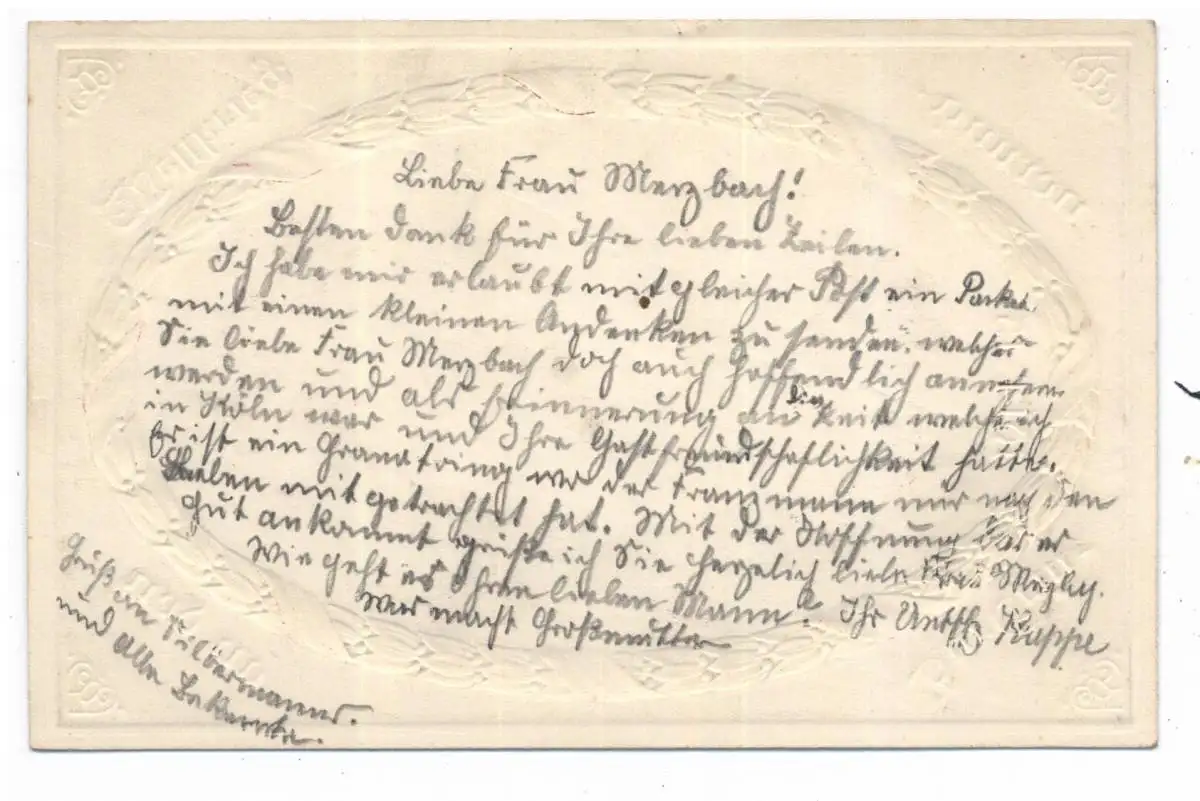 Liebe Frau Merzbach!
Besten Dank für Ihre lieben Zeilen.
Ich habe mir erlaubt mit gleicher Post ein Packet
mit einen kleinen Andenken zu senden. welcher
Sie liebe Frau Merzbach doch auch hoffendlich annehmen
werden und als Erinnerung an die Zeit welche ich
in Köln war und Ihre Gastfreundschaftlichkeit hatte.
Er ist ein Granatring wo der Franzmann mir nach den
Leben mit getrachtet hat. Mit der Hoffnung das er
gut ankommt grüße ich Sie herzelich liebe Frau Merzbch.
Wie geht es Ihren lieben Mann? Ihr Untsch
Was macht Großmutter
Gruß an Silbermanns.
und Alle Bekannte.